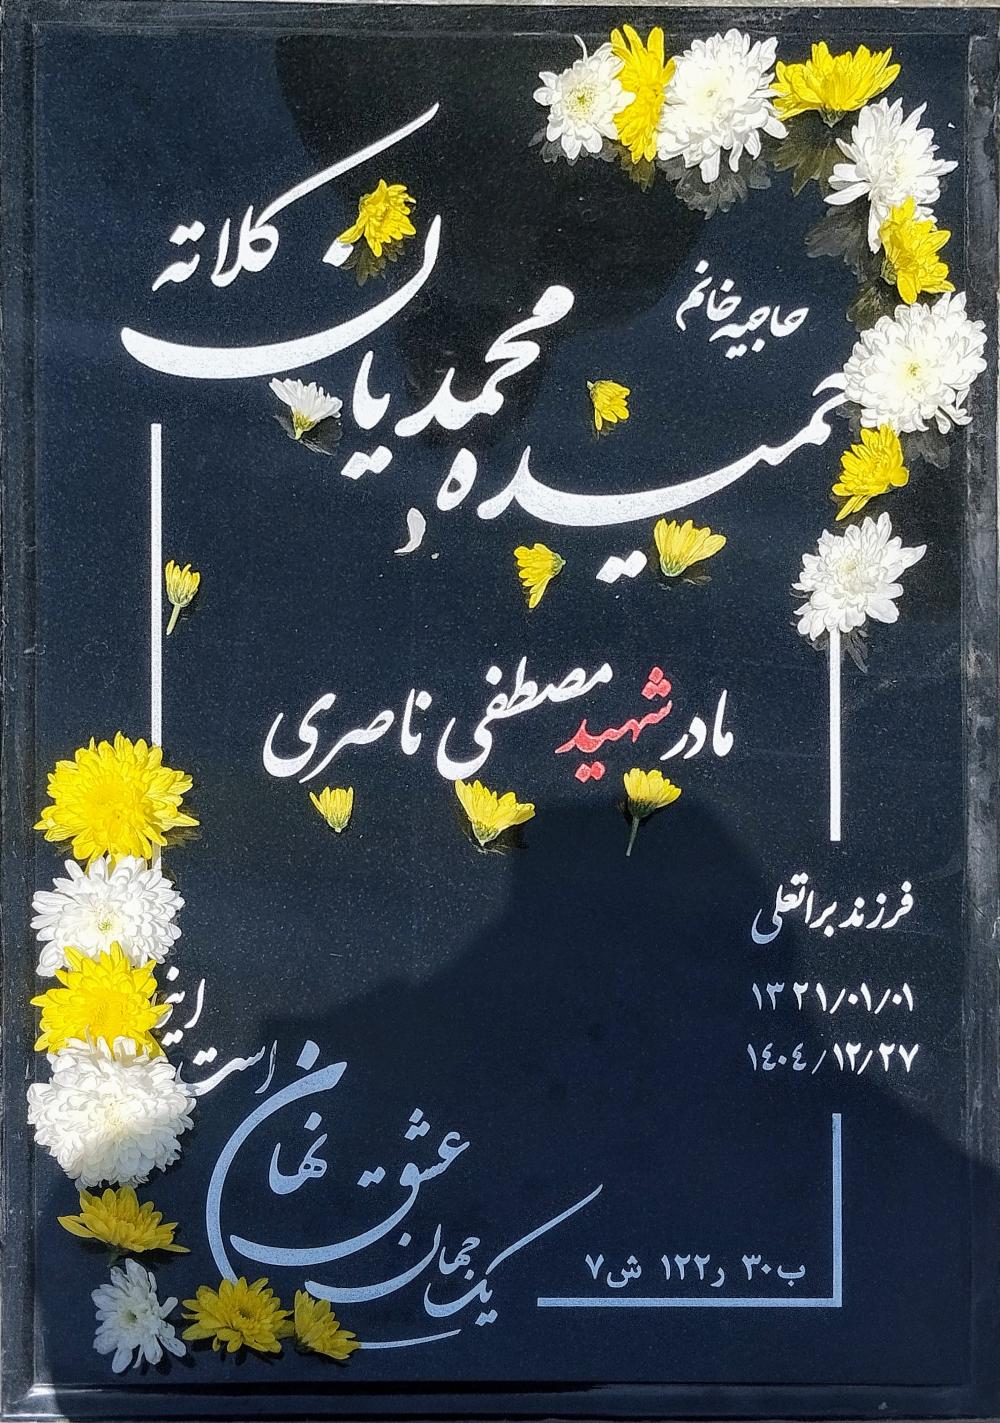 حاجیه خانم
حمیده محمدیان کلاته
مادر شهید مصطفی ناصری
فرزند براتعلی
۱۳۲۱/۰۱/۰۱
۱۴۰۴/۱۲/۲۷
یک جهان
عشق نهان
است
ب۳۰ ر۱۲۲ ش۷